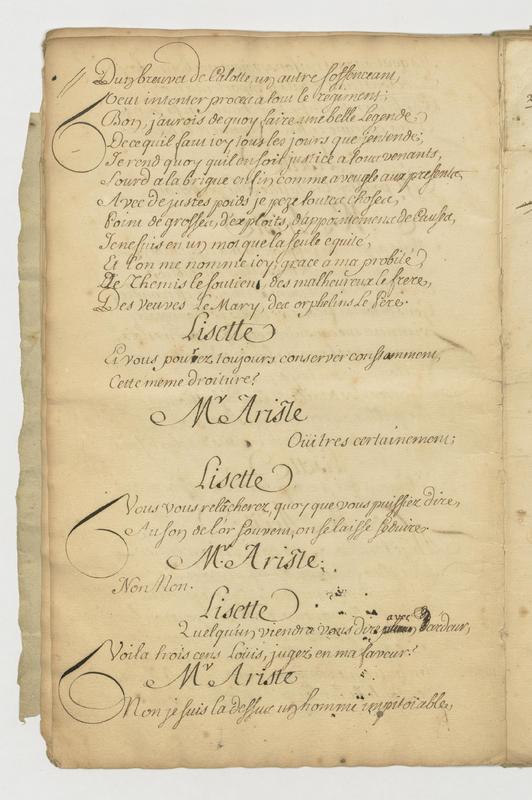 D'un brevet de Calotte, un autre s'offenceant,
Veut intenter procez a tout le regiment;
Bon j'aurois de quoy faire une belle Legende,
De ce quil faut icy tous les jours que j'entende;
Je rend quoy quil en soit justice a tous venants,
Sourd a la brigue enfin comme aveugle aux presents
Avec de justes poids je peze toutes choses,
Point de grosses, d'exploits, d'appointemens de Causes,
Je ne suis en un mot que la seule equité,
Et l'on me nomme icy, grace a ma probité,
De Themis le soutien, des malheureux le frere,
Des veuves Le Mary, des orphelins Le Pere.
Lisette
Et vous pourez toujours conserver constamment,
Cette meme droiture?
Mr. Ariste
Oüi tres certainement;
Lisette
Vous vous relâcherez, quoy que vous puissiez dire,
Au son de l'or souvent, on se laisse seduire.
Mr. Ariste.
Non Non.
Lisette
Quelqu'un viendra vous dire avec ardeur,
Voila trois cens Louis, jugez en ma faveur?
Mr. Ariste
Non je suis la dessus un homme impitoïable,